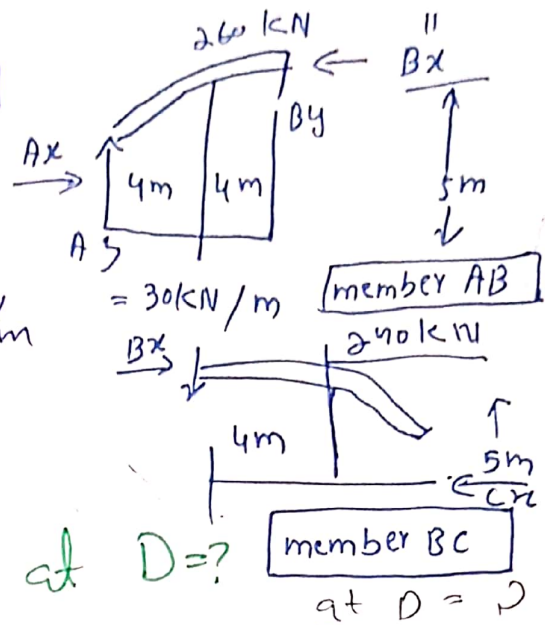 260 KN
"
← Bx
By
Ax
→
4m 4m
5m
Ay
= 30KN/m
member AB
m
Bx
→
240KN
4m
5m
←
Cx
member BC
at D=?
at D = ?